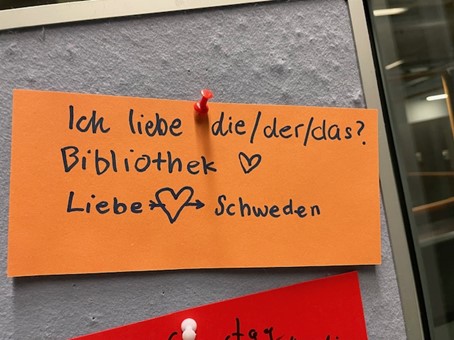 Ich liebe die/der/das?
Bibliothek ♡
Liebe Schweden